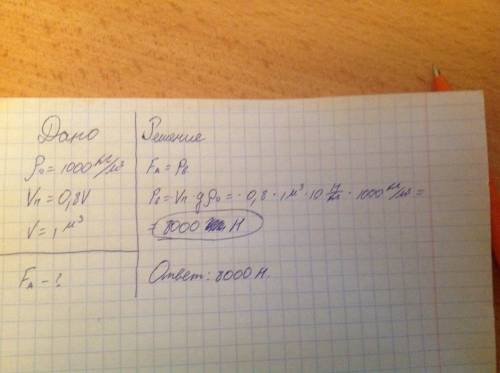 Дано
ρ₀ = 1000 кг/м³
Vп = 0,8V
V = 1 м³
Fₐ - ?
Решение
Fₐ = Pв
Pв = Vп gρ₀ = · 0,8 · 1 м³ · 10 Н/кг · 1000 кг/м³ =
= 8000 Н
Ответ: 8000 Н.